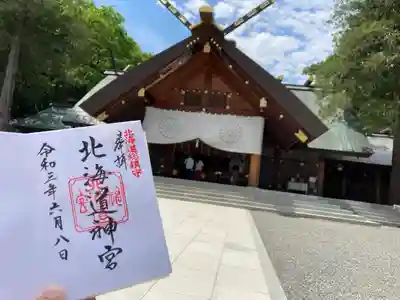 奉拝
北海道総鎮守
北海道神宮
令和三年六月八日